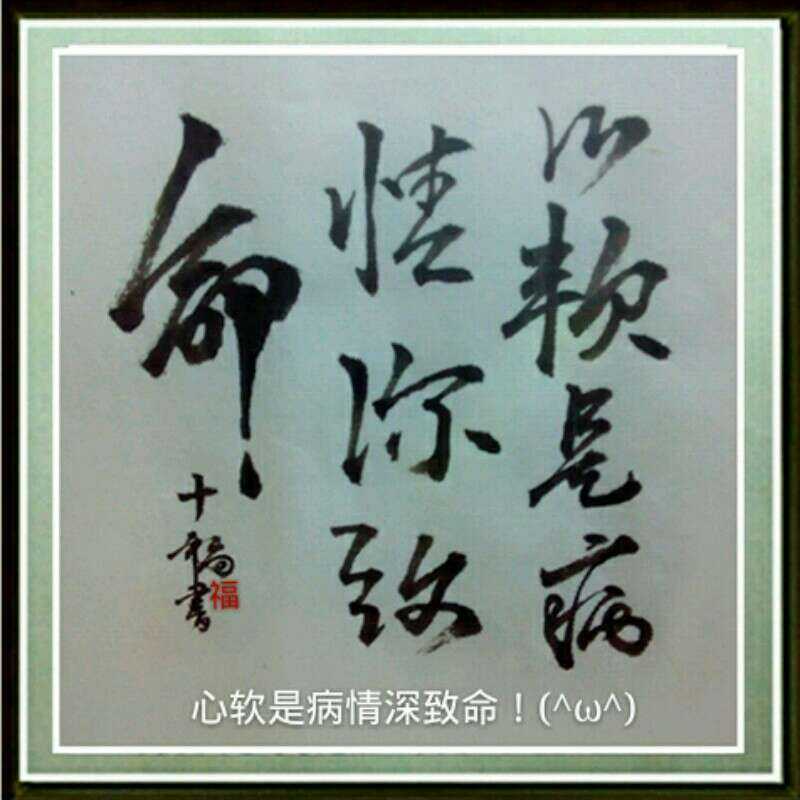 心软是病
情深致命
十福書
福
心软是病情深致命！(^ω^)